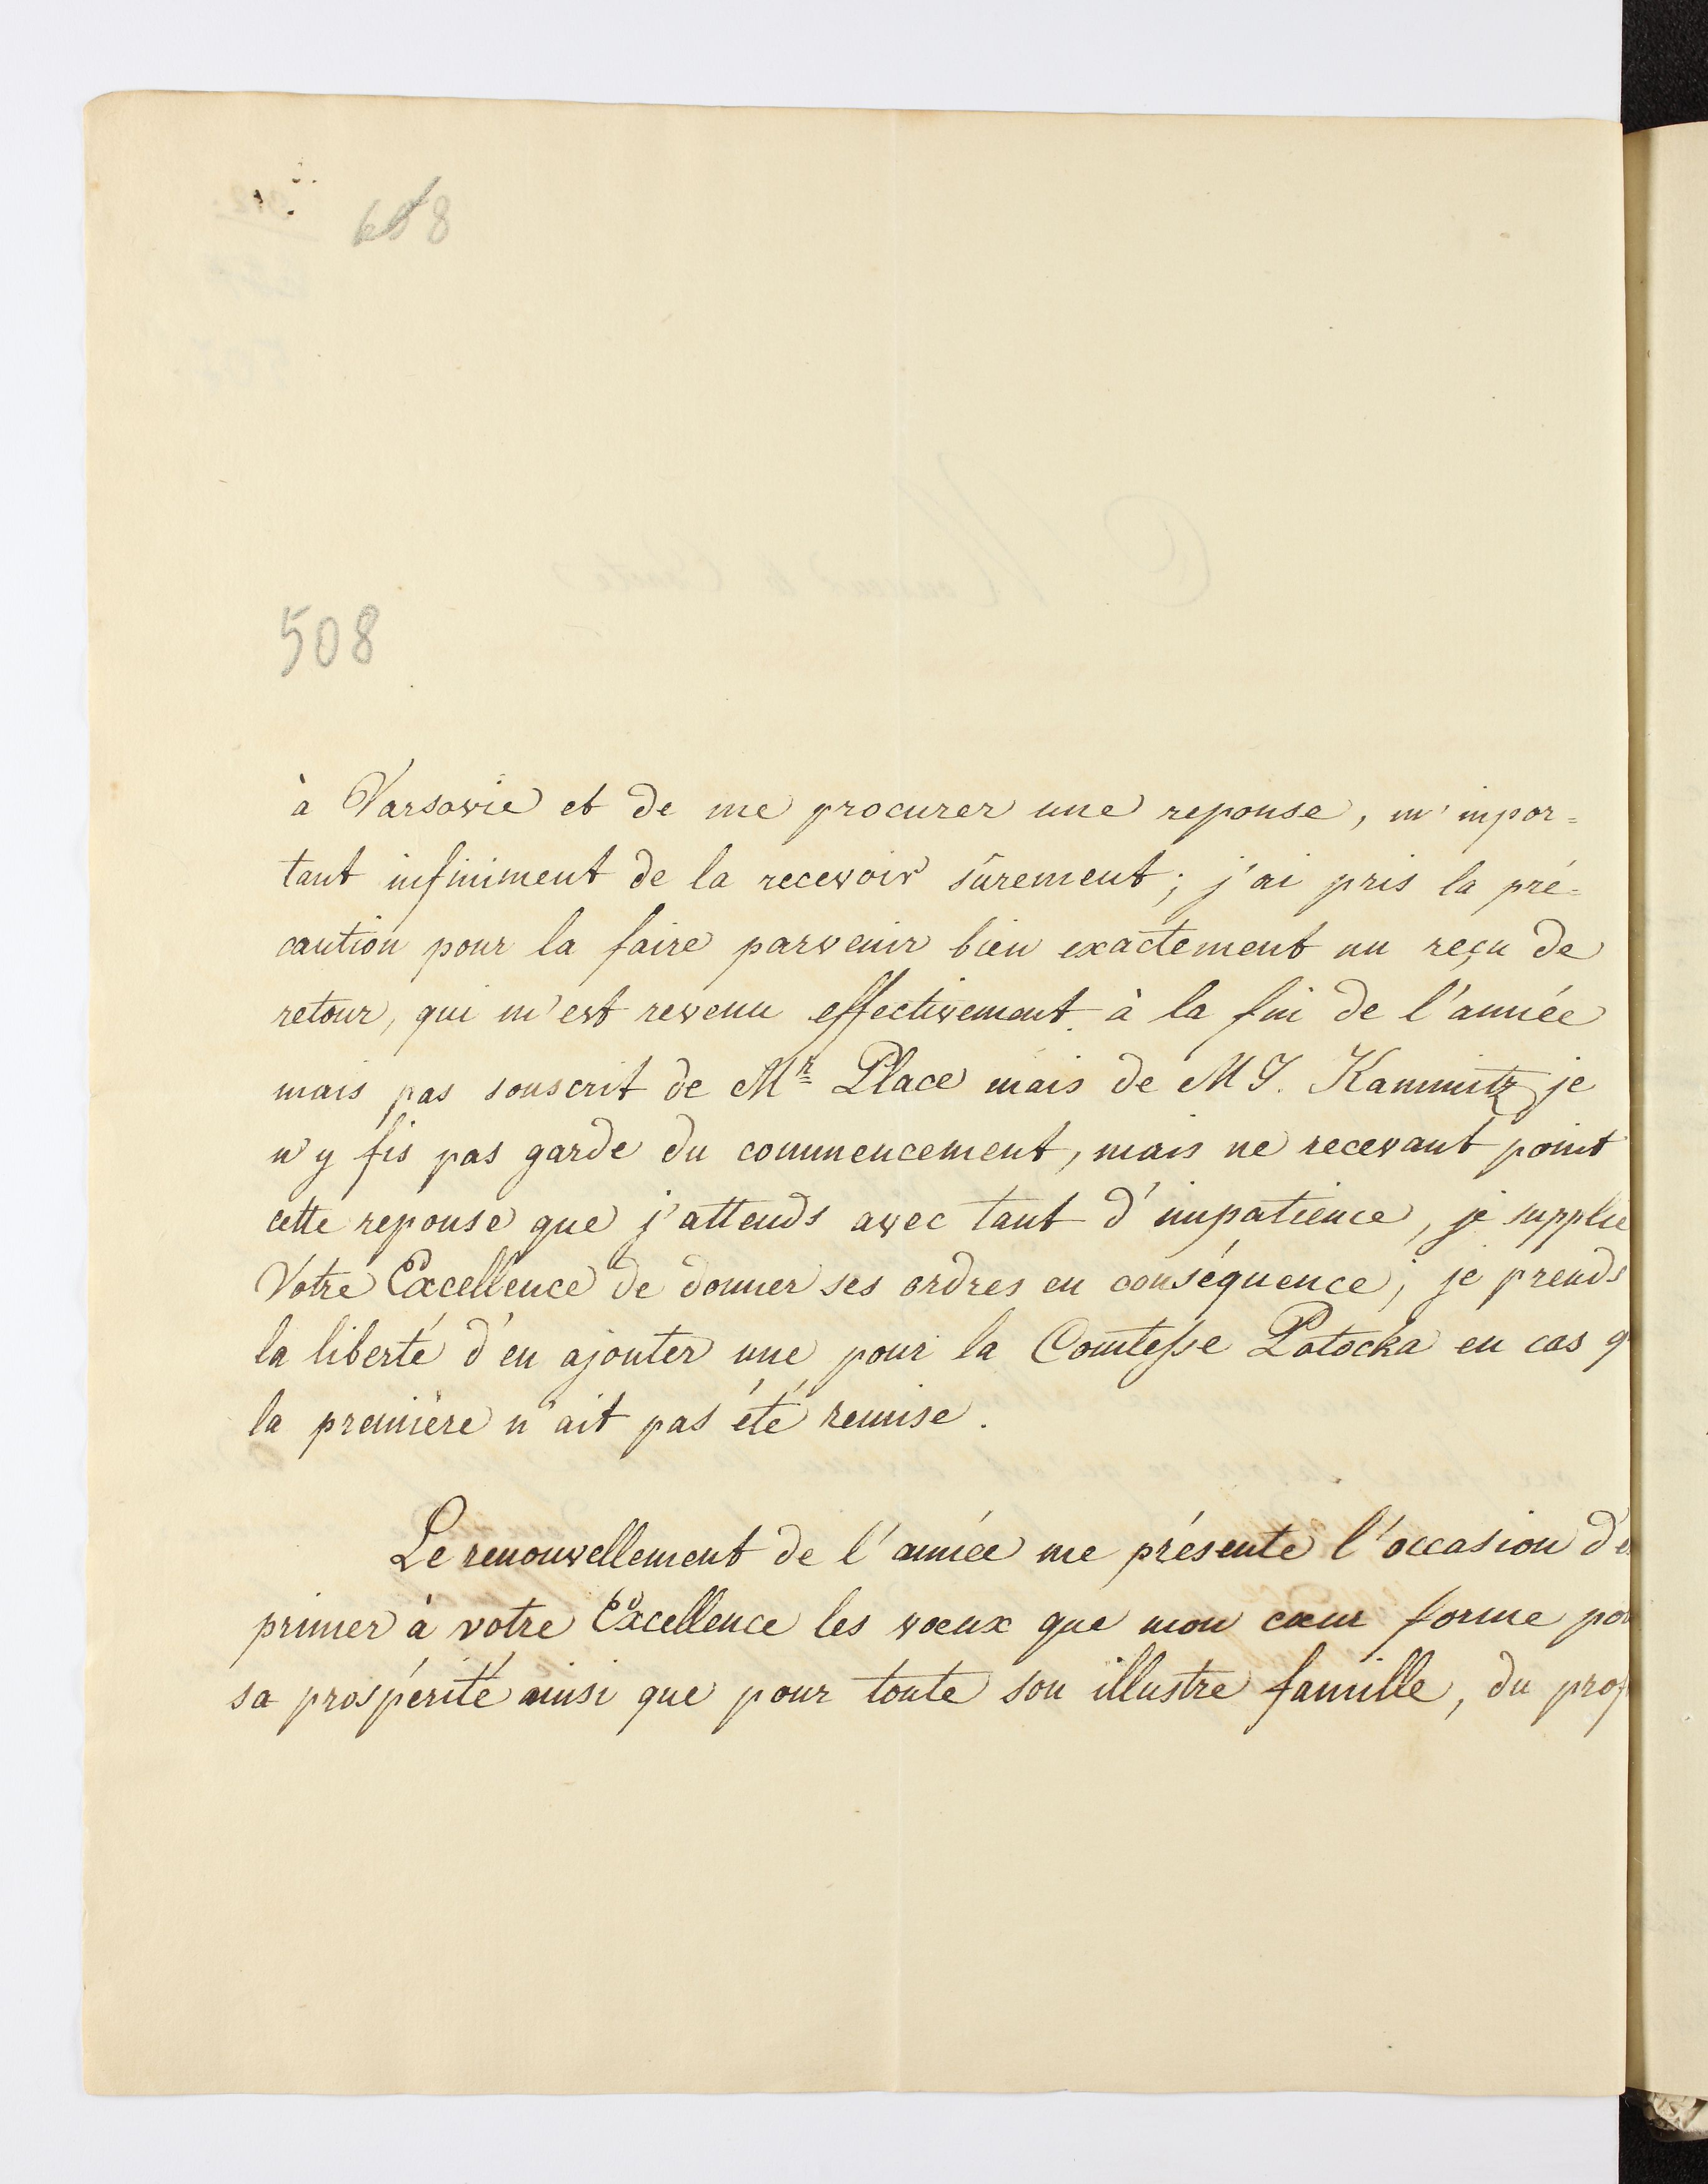 508
à Varsovie et de me procurer une reponse, m'inpor=
tant infiniment de la recevoir sûrement; j'ai pris la pré=
caution pour la faire parvenir bien exactement un reçu de
retour, qui m'est revenu effectivement à la fin de l'année
mais pas souscrit de Mr Place mais de M J. Kammitz je
n'y fis pas garde du commencement, mais ne recevant point
cette reponse que j'attends avec tant d'impatience, je supplie
Votre Excellence de donner ses ordres en conséquence; je prends
la liberté d'en ajouter une pour la Comtesse Potocka en cas q
la première n'ait pas été remise.
Le renouvellement de l'année me présente l'occasion d'e
primer à votre Excellence les voeux que mon coeur forme pou
sa prospérité ainsi que pour toute son illustre famille, du prof